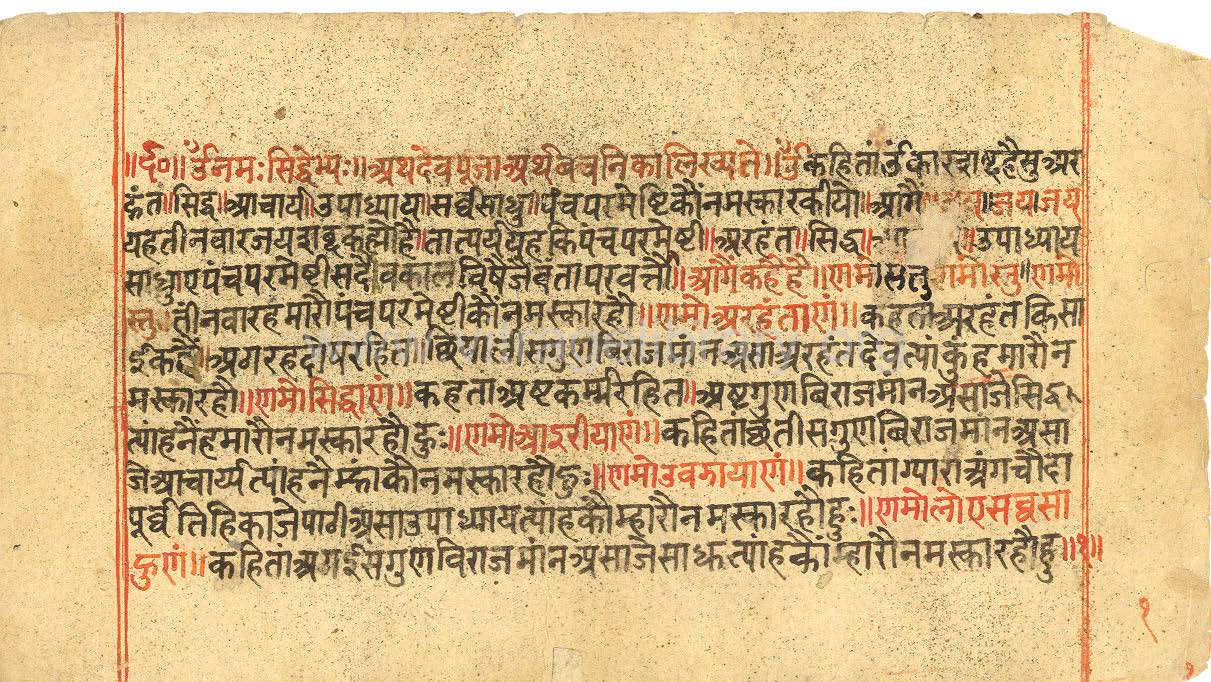 ॥र्द०॥ ॐनमःसिद्धेभ्यः॥अथदेवपूजाअर्थवचनिकालिख्यते॥ॐकहितांॐकारशब्दहैसुअर
हंत॥सिद्ध॥आचार्य॥उपाध्याय॥सर्व्वसाधु॥पंचपरमेष्टिकौंनमस्कारकीयौ॥आगैं जयजय
यहतीनवारजयशब्दकह्योहै॥तात्पर्ययहकिपंचपरमेष्टी॥अरहंत॥सिद्ध॥ ॥उपाध्याय
साधुएपंचपरमेष्टीसदैवकालविषैजैवंतापरवर्त्तौ॥आगैंकहैहै॥णमोस्तु णमोस्तु॥णमो
स्तु तीनवारहमारोपंचपरमेष्टीकौंनमस्कारहौ॥णमोअरहंताणं॥कहताअरहंतकिसा
इकहै॥अगरहदोषरहित॥छियालीसगुणविराजमांनअसाअरहंतदेवत्यांकुंहमारौन
मस्कारहौ॥णमोसिद्धाणं॥कहताअष्टकर्म्मरहित॥अष्टगुणबिराजमानअसाजेसिद्ध
त्यांहनैंहमारौनमस्कारहौहुः॥णमोआइरीयाणं॥कहितांछतीसगुणबिराजमांनअसा
जैआचार्य्यत्यांहनैम्हाकौनमस्कारहौहुः॥णमोउवझायाणं॥कहितांग्याराअंगचौदा
पूर्व्वतिहिकाजेपाठीअसाउपाध्यायत्यांहकौम्हारौनमस्कारहौहुः॥णमोलोएसव्वसा
हुणं॥कहितांअठाईसगुणविराजमांनअसाजेसाधुत्यांहकौंम्हारौनमस्कारहौहु॥१॥
१
१